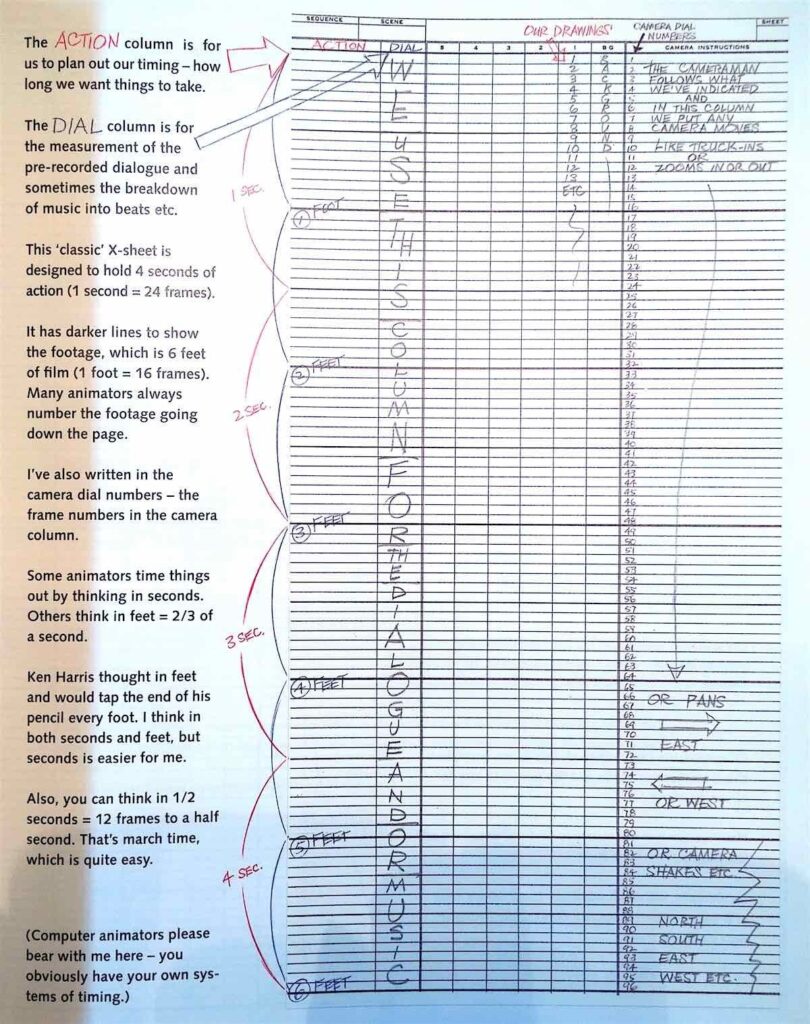 The ACTION column is for
us to plan out our timing – how
long we want things to take.
The DIAL column is for
the measurement of the
pre-recorded dialogue and
sometimes the breakdown
of music into beats etc.
This ‘classic’ X-sheet is
designed to hold 4 seconds of
action (1 second = 24 frames).
It has darker lines to show
the footage, which is 6 feet
of film (1 foot = 16 frames).
Many animators always
number the footage going
down the page.
I've also written in the
camera dial numbers – the
frame numbers in the camera
column.
Some animators time things
out by thinking in seconds.
Others think in feet = 2/3 of
a second.
Ken Harris thought in feet
and would tap the end of his
pencil every foot. I think in
both seconds and feet, but
seconds is easier for me.
Also, you can think in 1/2
seconds = 12 frames to a half
second. That's march time,
which is quite easy.
(Computer animators please
bear with me here – you
obviously have your own sys-
tems of timing.)
SEQUENCE SCENE SHEET
OUR DRAWINGS
CAMERA DIAL
NUMBERS
ACTION DIAL 5 4 3 2 1 BG CAMERA INSTRUCTIONS
1 SEC.
2 SEC.
3 SEC.
4 SEC.
1 FOOT
2 FEET
3 FEET
4 FEET
5 FEET
6 FEET
WE USE THIS COLUMN FOR THE DIALOGUE AND OR MUSIC
1
2
3
4
5
6
7
8
9
10
11
12
13
ETC
BACKGROUND
1
2
3
4
5
6
7
8
9
10
11
12
13
14
15
16
17
18
19
20
21
22
23
24
25
26
27
28
29
30
31
32
33
34
35
36
37
38
39
40
41
42
43
44
45
46
47
48
49
50
51
52
53
54
55
56
57
58
59
60
61
62
63
64
65
66
67
68
69
70
71
72
73
74
75
76
77
78
79
80
81
82
83
84
85
86
87
88
89
90
91
93
94
95
96
THE CAMERAMAN
FOLLOWS WHAT
WE'VE INDICATED
AND
IN THIS COLUMN
WE PUT ANY
CAMERA MOVES
LIKE TRUCK-INS
OR
ZOOMS IN OR OUT
OR PANS
EAST
OR WEST
OR CAMERA
SHAKES ETC.
NORTH
SOUTH
EAST
WEST ETC.